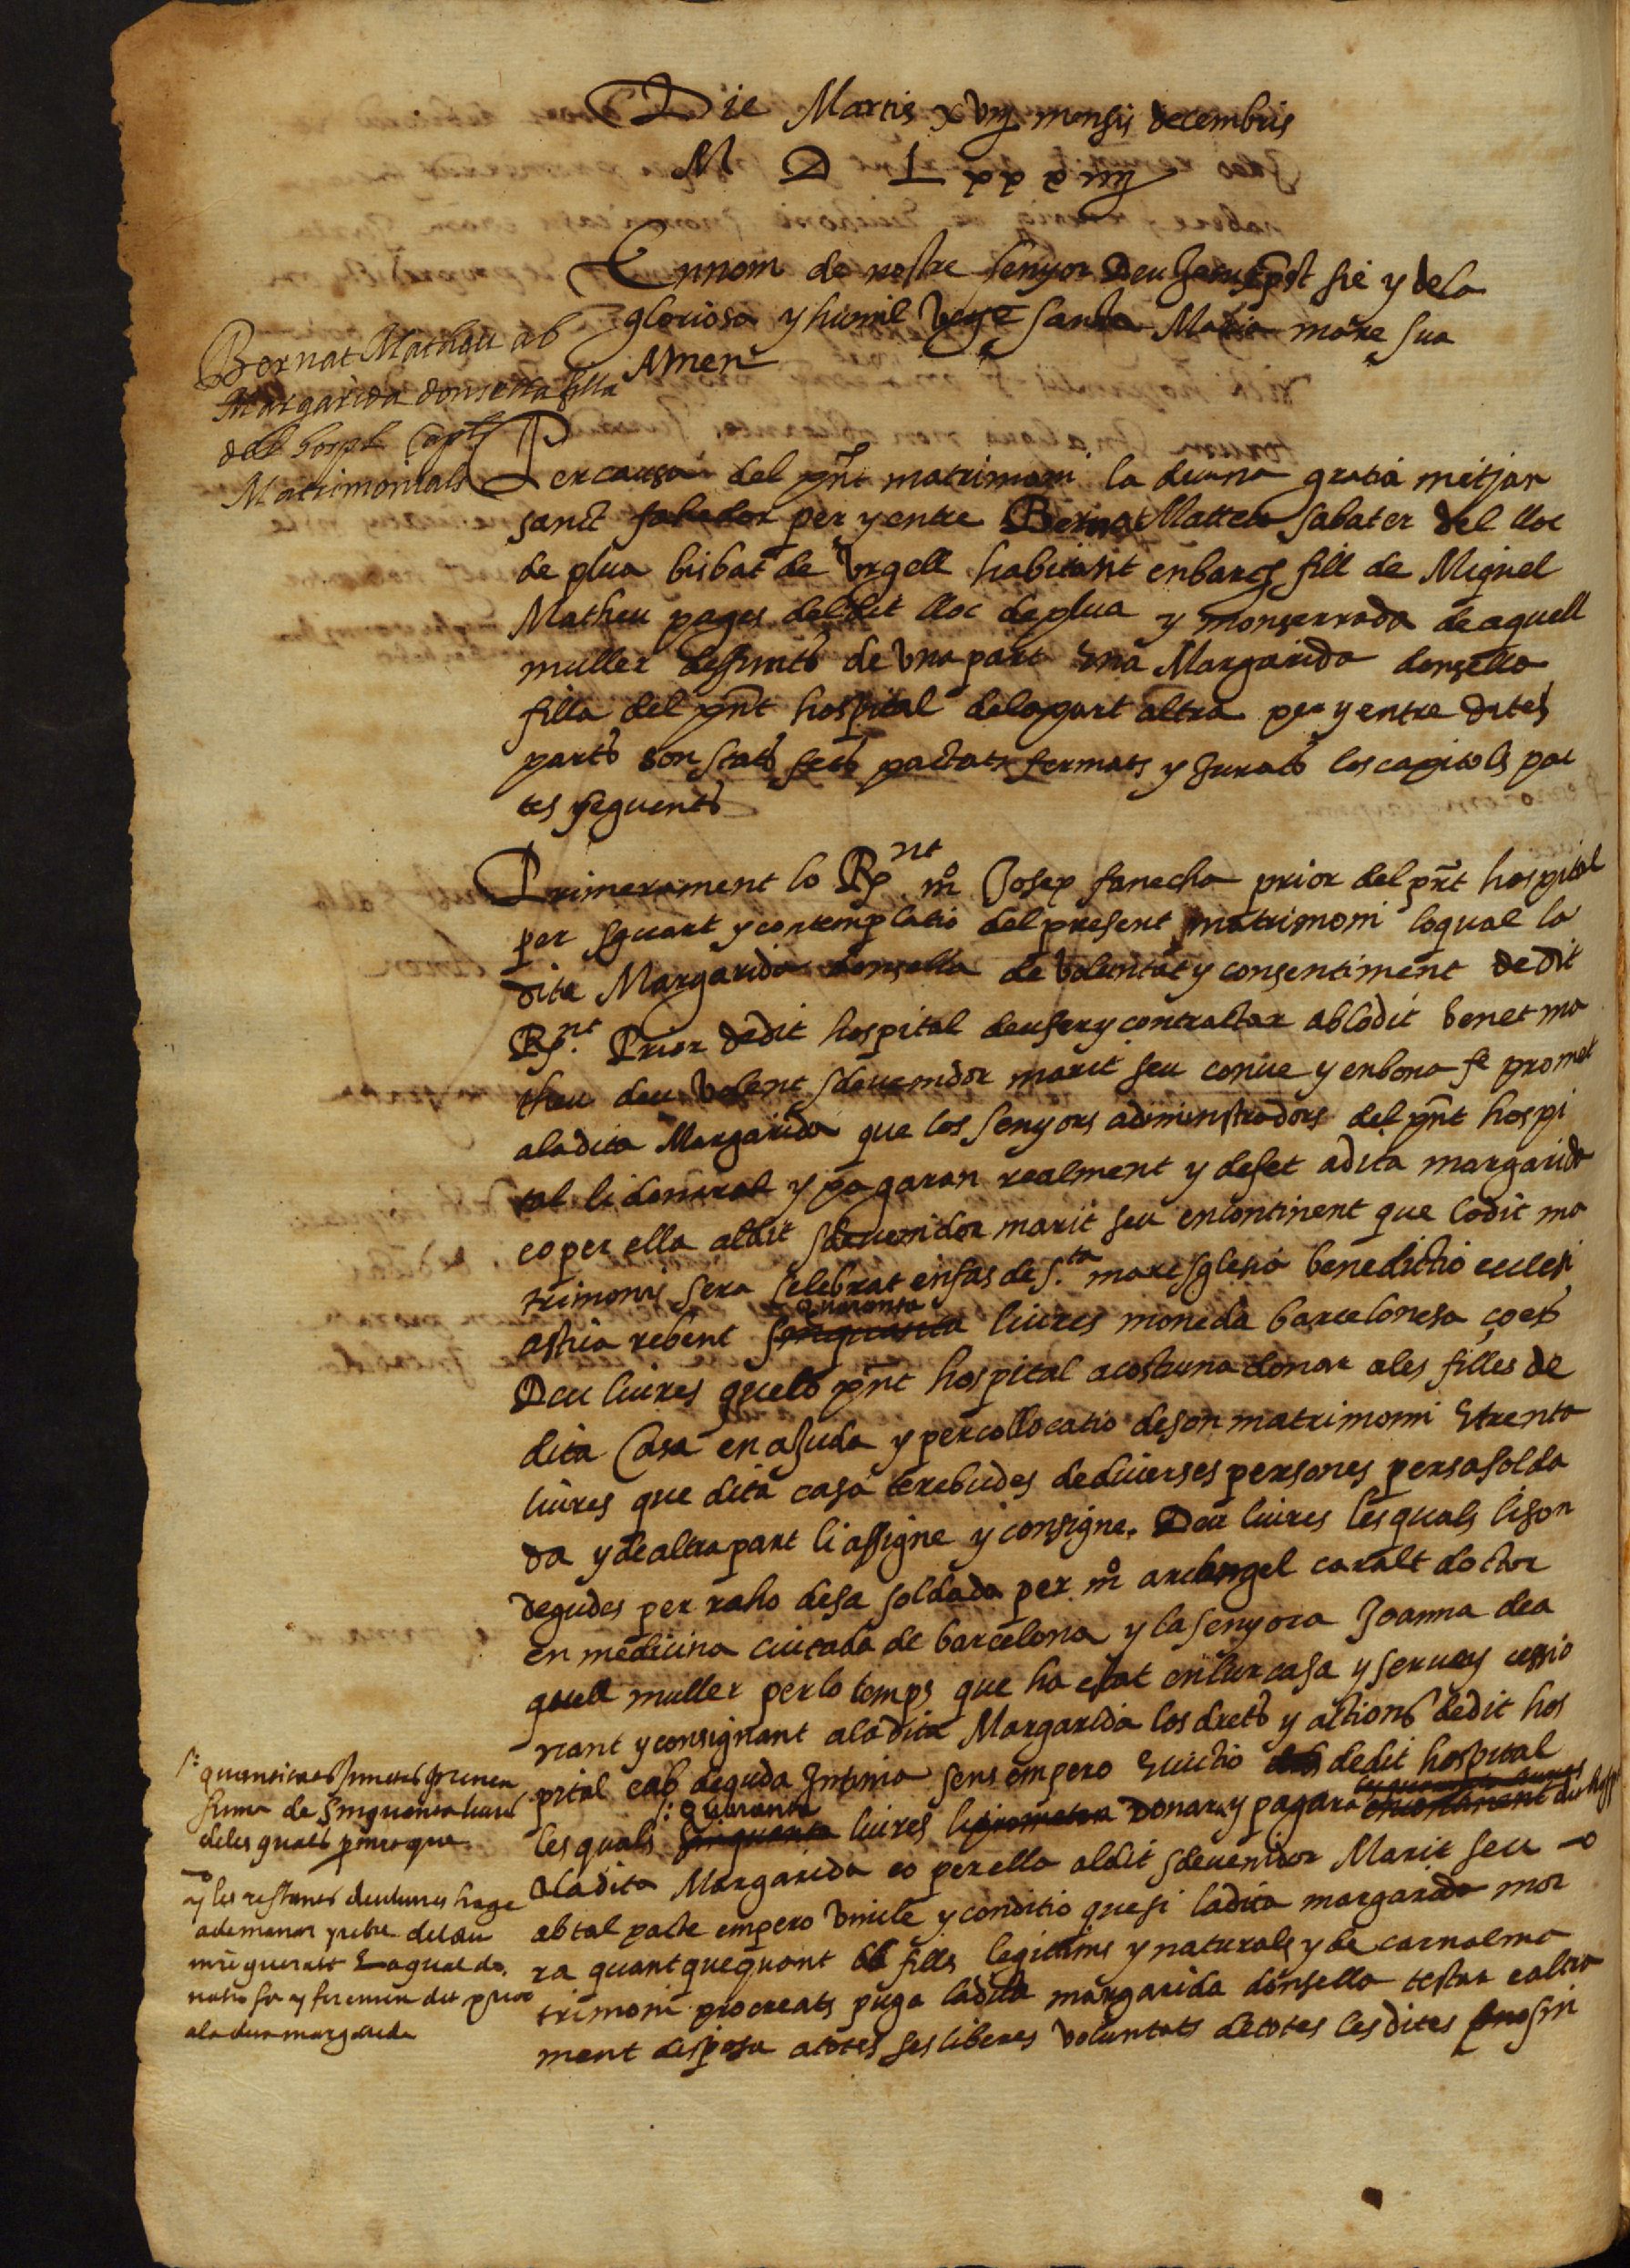 Die Martis xviij mensis decembris
M D L xxxiiij
En nom de nostre senyor Deu Jesuxpst sie y de la
gloriosa y humil verge santa Maria mare sua
Amen
Bernat Matheu ab
Margarida donsella filla
del hospl Capls
Matrimonials
Per causa del pnt matrimoni la divina gratia mitjan
sanct fahedor per y entre Bernat Matteu sabater del lloc
de plua bisbat de Urgell habitant en barcs fill de Miquel
Matheu pages del dit lloc de plua y monserrada de aquell
muller deffunts de una part E na Margarida donsella
filla del pnt hospital de la part altra per y entre dites
parts son stats fets pactats fermats y jurats los capitols pac
tes seguents
Primerament lo Rnt mo Josep fanecha prior del pnt hospital
per sguart y contemplatio del present matrimoni loqual la
dita Margarida donsella de voluntat y consentiment de dit
Rnt Prior de dit hospital deu fer y contractar ab lo dit benet ma
theu deu volent sdevenidor marit seu conve y en bona fe promet
a la dita Margarida que los senyors administradors del pnt hospi
tal li donaran y pagaran realment y de fet a dita margarida
eo per ella al dit sdevenidor marit seu encontinent que lo dit ma
trimoni sera selebrat en fas de s.ta mare sglesia benedictio eclesi
astica rebent sinquanta quoranta liures moneda barcelonesa ço es
Deu liures que lo pnt hospital acostuma donar a les filles de
dita Casa en ajuda y per collocatio de son matrimoni E trenta
liures que dita casa te rebudes de diverses persones per sa solda
da y de altra part li assigne y consigne. Deu liures les quals li son
degudes per raho de sa soldada per mo archangel caralt doctor
en medicina ciutada de barcelona y la senyora Joanna de a
quell muller per lo temps que ha estat en lur casa y servey cessio
nant y consignant a la dita Margarida los drets y actions de dit hos
pital e ab deguda Intima sens empero Evictio de dit hospital
les quals sinquanta s: quoranta liures li prometen Donar y pagara encontinent dit hosp
a la dita Margarida eo per ella al dit sdevenidor Marit seu
ab tal pacte empero vincle y conditio que si la dita margarida mor
ra quant que quant ab fills legitims y naturals y de carnal ma
trimoni procreats puga la dita margarida donsella testar e altra
ment disposar a totes ses liberes voluntats de totes les dites sin
s: quantitats juntes prenen
suma de sinquanta liures
de les quals prometque
y les restants deu liures hage
a demanar y rebre del dit
mre queralt La qual do.
natio fa y fer enten dit prior
a la dita margarida